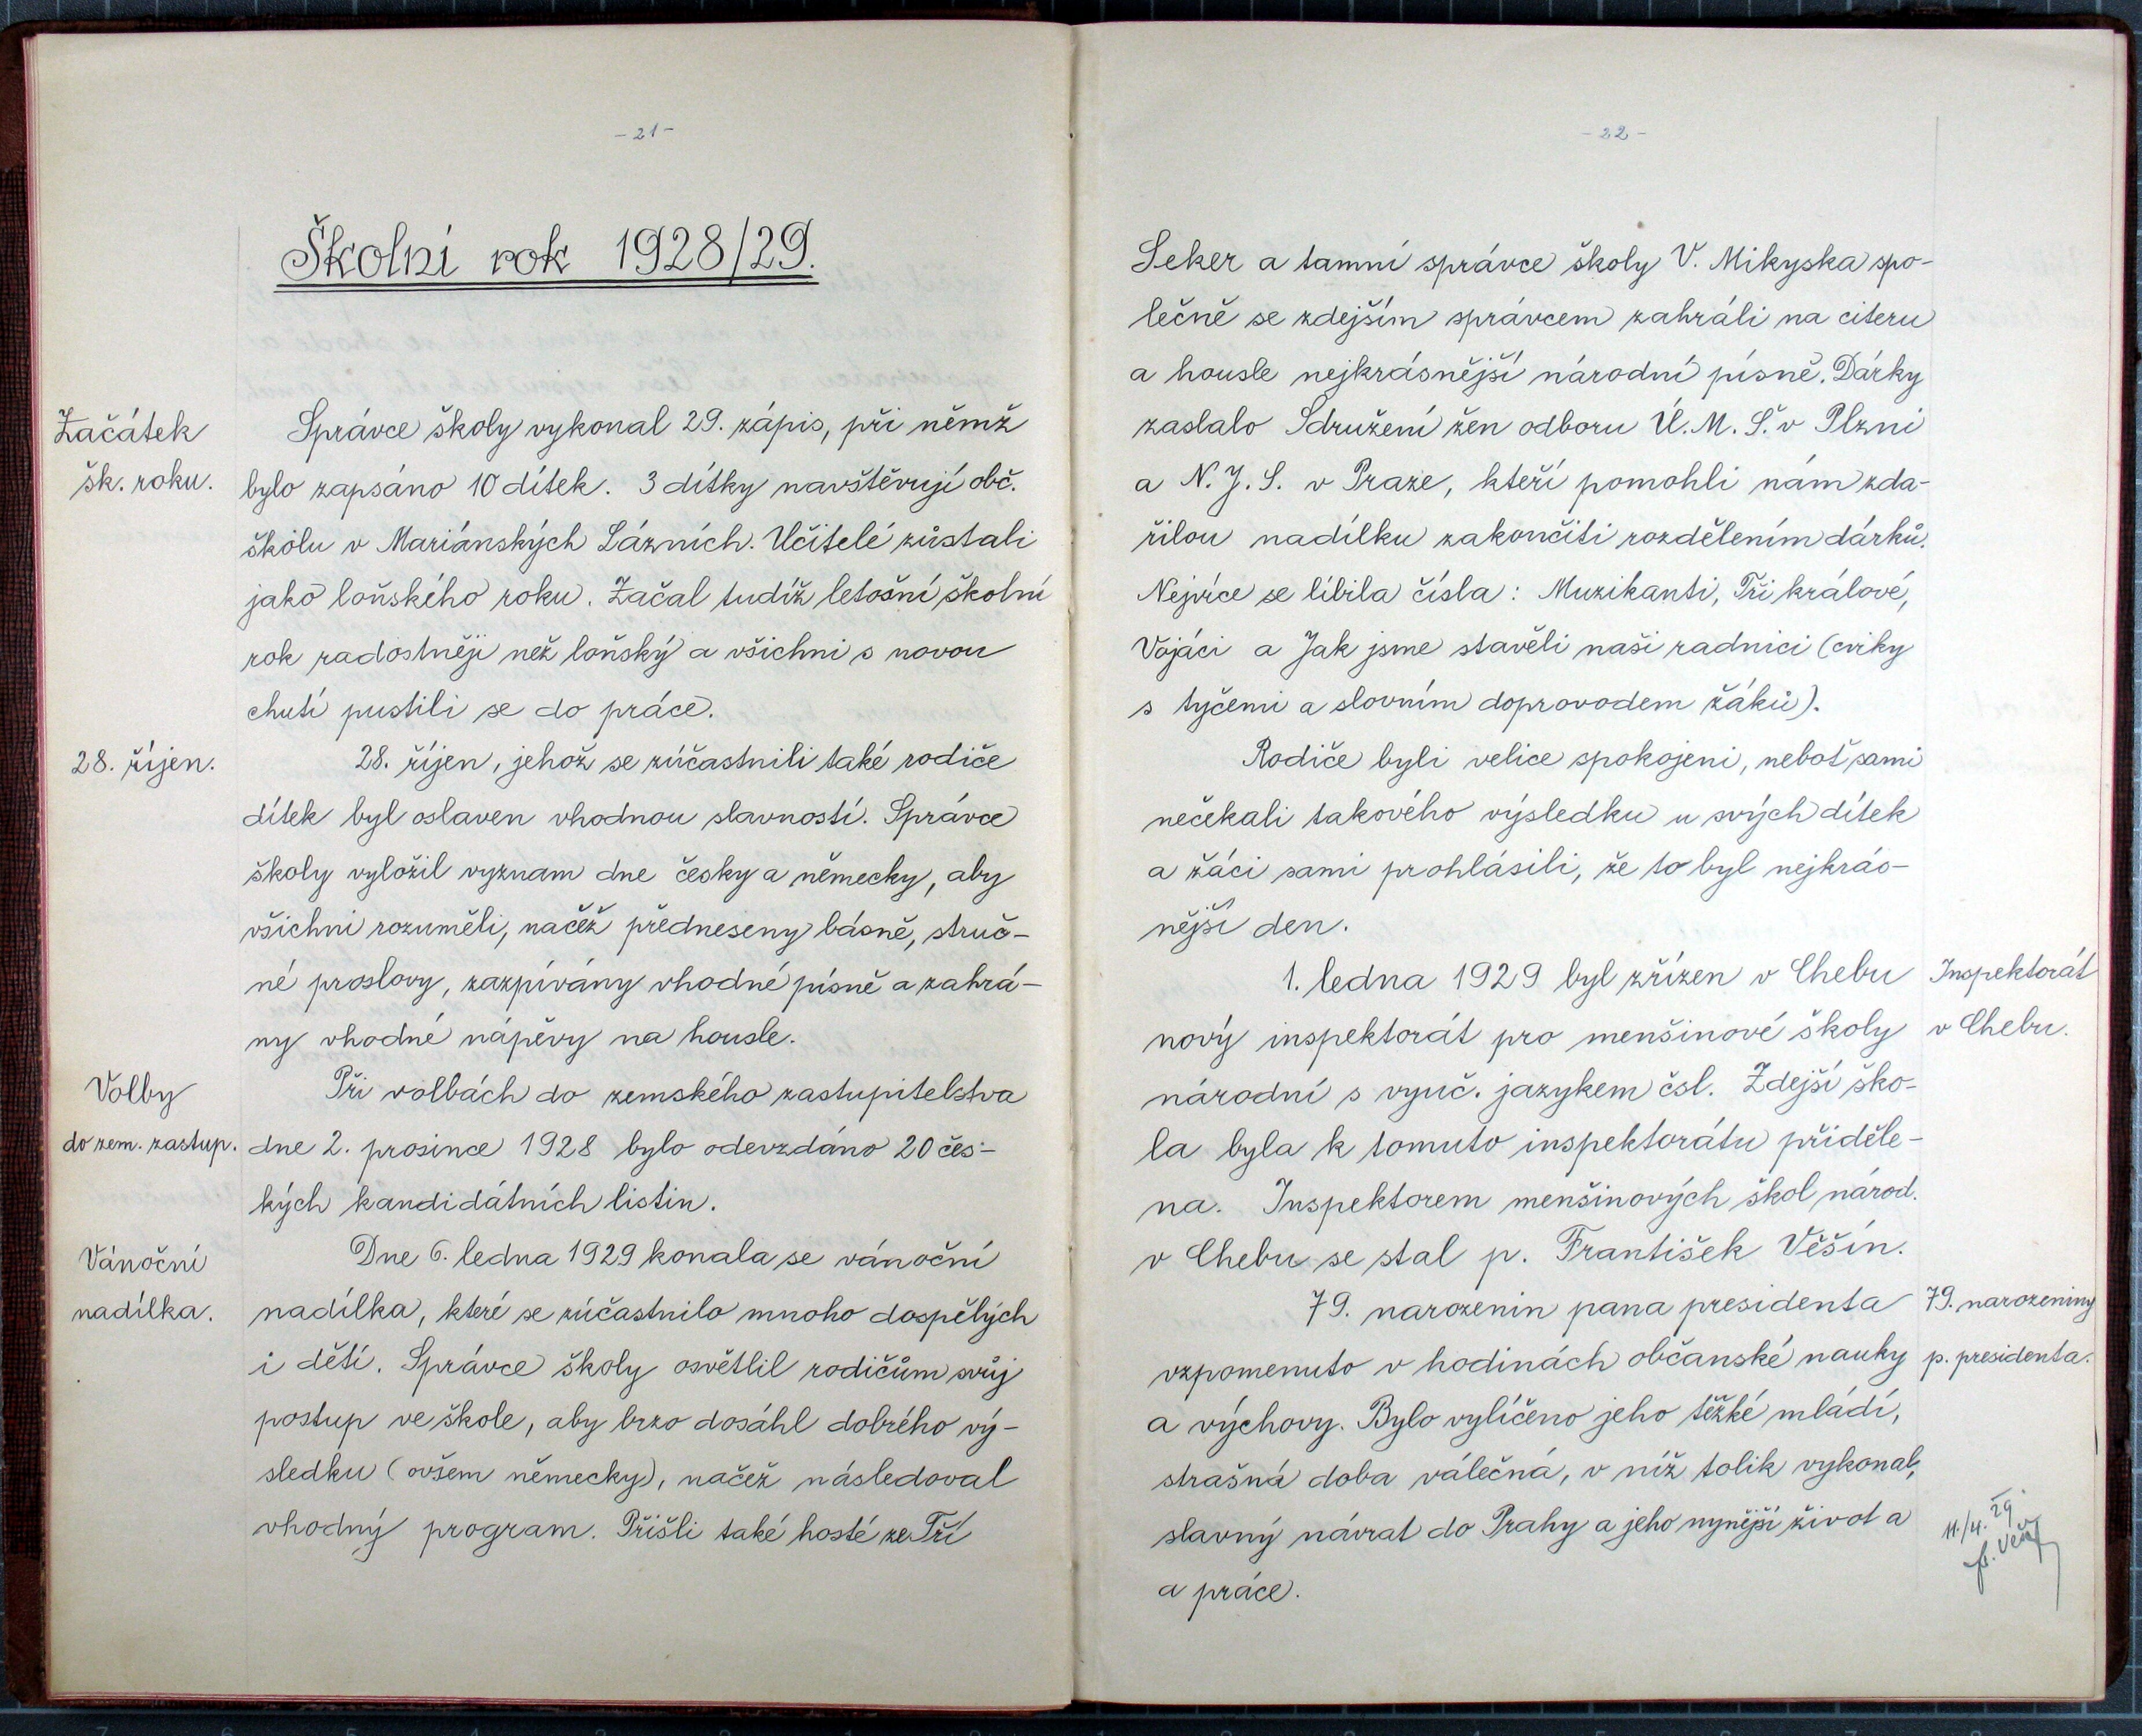 - 21 -
Školní rok 1928/29.
Začátek
šk. roku.
Správce školy vykonal 29. zápis, při němž
bylo zapsáno 10 dítek. 3 dítky navštěvují obč.
školu v Mariánských Lázních. Učitelé zůstali
jako loňského roku. Začal tudíž letošní školní
rok radostněji než loňský a všichni s novou
chutí pustili se do práce.
28. říjen.
28. říjen, jehož se zúčastnili také rodiče
dítek byl oslaven vhodnou slavností. Správce
školy vyložil vyznam dne česky a německy, aby
všichni rozuměli, načež předneseny básně, struč-
né proslovy, zazpívány vhodné písně a zahrá-
ny vhodné nápěvy na housle.
Volby
do zem. zastup.
Při volbách do zemského zastupitelstva
dne 2. prosince 1928 bylo odevzdáno 20 čes-
kých kandidátních listin.
Vánoční
nadílka.
Dne 6. ledna 1929 konala se vánoční
nadílka, které se zúčastnilo mnoho dospělých
i dětí. Správce školy osvětlil rodičům svůj
postup ve škole, aby brzo dosáhl dobrého vý-
sledku (ovšem německy), načež následoval
vhodný program. Přišli také hosté ze Tří
- 22 -
Seker a tamní správce školy V. Mikyska spo-
lečně se zdejším správcem zahráli na citeru
a housle nejkrásnější národní písně. Dárky
zaslalo Sdružení žen odboru Ú. M. Š. v Plzni
a N. J. S. v Praze, kteří pomohli nám zda-
řilou nadílku zakončiti rozdělením dárků.
Nejvíce se líbila čísla: Muzikanti, Tři králové,
Vojáci a Jak jsme stavěli naši radnici (cviky
s tyčemi a slovním doprovodem žáků).
Rodiče byli velice spokojeni, neboť sami
nečekali takového výsledku u svých dítek
a žáci sami prohlásili, že to byl nejkrás-
nější den.
1. ledna 1929 byl zřízen v Chebu
nový inspektorát pro menšinové školy
národní s vyuč. jazykem čsl. Zdejší ško-
la byla k tomuto inspektorátu příděle-
na. Inspektorem menšinových škol národ.
v Chebu se stal p. František Věšín.
Inspektorát
v Chebu.
79. narozenin pana presidenta
vzpomenuto v hodinách občanské nauky
a výchovy. Bylo vylíčeno jeho těžké mládí,
strašná doba válečná, v níž tolik vykonal,
slavný návrat do Prahy a jeho nynější život a
a práce.
79. narozeniny
p. presidenta.
11./4. 29